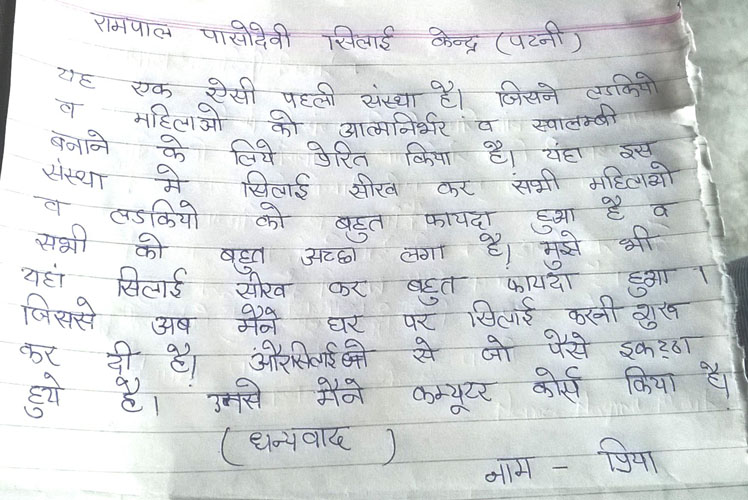 रामपाल पासोदेवी सिलाई केन्द्र (पटनी)
यह एक ऐसी पहली संस्था है। जिसने लडकियो
व महिलाओ को आत्मनिर्भर व स्वालम्बी
बनाने के लिये प्रेरित किया है। यंहा इस
संस्था मे सिलाई सीख कर सभी महिलाओ
व लडकियो को बहुत फायदा हुआ है व
सभी को बहुत अच्छा लगा है। मुझे भी
यहां सिलाई सीख कर बहुत फायदा हुआ ।
जिससे अब मैने घर पर सिलाई करनी शुरू
कर दी है। और सिलाई से जो पैसे इकट्ठा
हुये है। उनसे मैने कम्यूटर कोर्स किया है।
(धन्यवाद )
नाम - प्रिया